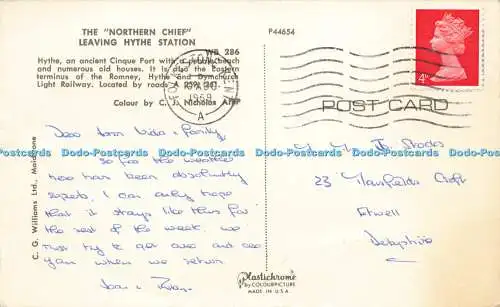 THE "NORTHERN CHIEF"
LEAVING HYTHE STATION
WB 286
Hythe, an ancient Cinque Port with a pebble beach
and numerous old houses. It is also the Eastern
terminus of the Romney, Hythe and Dymchurch
Light Railway. Located by roads A 259, 261.
Colour by C. J. Nicholas
P44654
1969
A
4D
POST CARD
C. G. Williams Ltd., Maidstone
Dear Ann & family,
So far the weather
has been absolutely
superb. I can only hope
that it stays like this for
the rest of the week. We
must try to get over and see
you when we return.
23
Etwell
Derbyshire
Plastichrome
by COLOURPICTURE
MADE IN U.S.A.
Dodo-Postcards Dodo-Postcards Dodo-Postcards